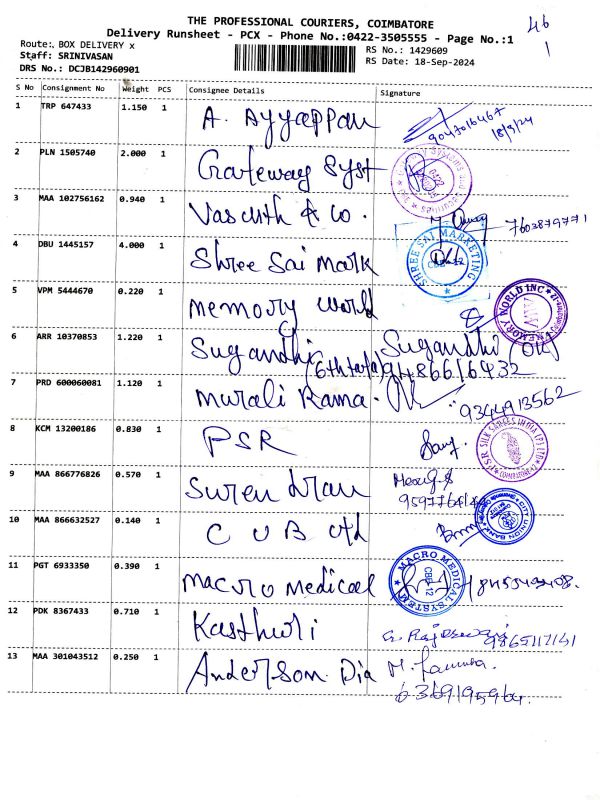 46
1
THE PROFESSIONAL COURIERS, COIMBATORE
Delivery Runsheet - PCX - Phone No.:0422-3505555 - Page No.:1
Route:. BOX DELIVERY x
Staff: SRINIVASAN
DRS No.: DCJB142960901
RS No.: 1429609
RS Date: 18-Sep-2024
S No Consignment No Weight PCS Consignee Details Signature
1 TRP 647433 1.150 1 A. Ayyappan
18/9/24
2 PLN 1505740 2.000 1 Gateway Syst
3 MAA 102756162 0.940 1 & Co.
4 DBU 1445157 4.000 1 Shree Sai Mark SHREE SAI MARKETING
5 VPM 5444670 0.220 1 memory world MEMORY WORLD INC
6 ARR 10370853 1.220 1 Sugandhi Sugandhi
9486616432
7 PRD 600060081 1.120 1 Murali Rama.
9344913562
8 KCM 13200186 0.830 1 PSR PSR SILK SAREES INDIA (P) LTD
9 MAA 866776826 0.570 1 Surendran
10 MAA 866632527 0.140 1 CUB Ltd CITY UNION BANK
11 PGT 6933350 0.390 1 Macro Medical MACRO MEDICAL SYSTEM CBE-12
12 PDK 8367433 0.710 1 Kasthuri
13 MAA 301043512 0.250 1 Anderson Dia
6369195964